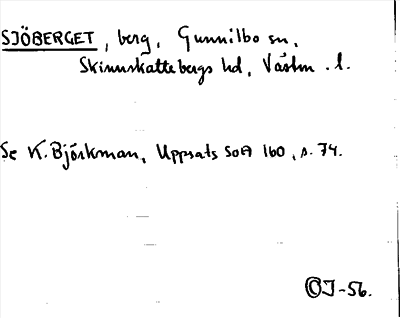 SJÖBERGET, berg, Gunnilbo sn,
Skinnskattebergs hd, Västm. l.
Se K. Björkman, Uppsats SOA 160, s. 74.
OJ-56.